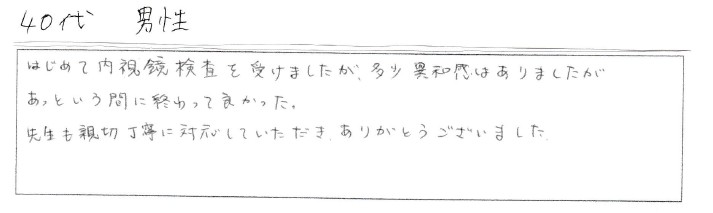 40代 男性
はじめて内視鏡検査を受けましたが、多少異和感はありましたが
あっという間に終わって良かった。
先生も親切丁寧に対応していただき、ありがとうございました。